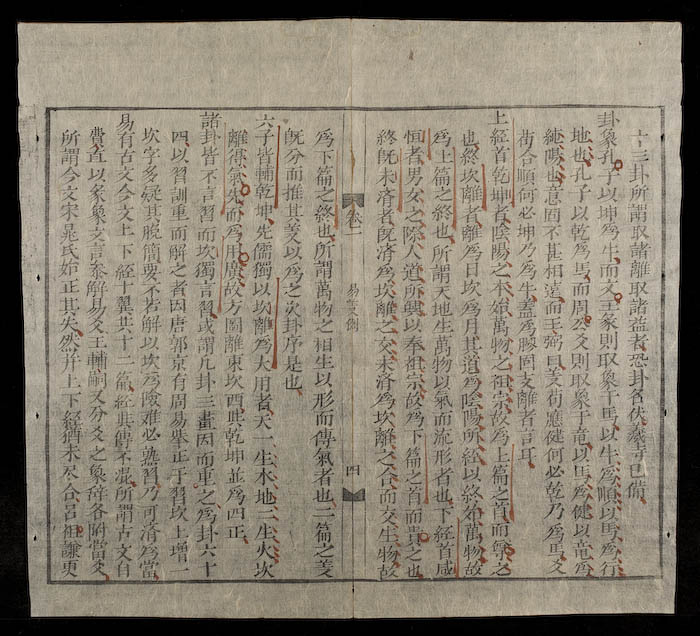 十三卦所謂取諸離取諸益者恐卦名伏羲時已備
卦象孔子以坤爲牛而文王彖則取象于馬以牛爲順以馬爲行
地也孔子以乾爲馬而周公爻則取象于竜以馬爲健以竜爲
純陽也意固不甚相遠而王弼曰爻苟應健何必乾乃爲馬爻
苟合順何必坤乃爲牛蓋爲膠固支離者言耳
上經首乾坤者陰陽之本始萬物之祖宗故爲上篇之首而尊之
也終坎離者離爲日坎爲月其道爲陰陽所經以終始萬物故
爲上篇之終也所謂天地生萬物以氣而流形者也下經首咸
恒者男女之際人道所興以奉祖宗故爲下篇之首而貴之也
終既未濟者既濟爲坎離之交未濟爲坎離之合而交生物故
卷二
易義例
四
爲下篇之終也所謂萬物之相生以形而傳氣者也二篇之義
既分而推其義以爲之次卦序是也
六子皆輔乾坤先儒獨以坎離爲大用者天一生水地二生火坎
離得氣先而爲用廣故方圖離東坎西與乾坤並爲四正
諸卦皆不言習而坎獨言習或謂凡卦三畫因而重之爲卦六十
四以習訓重而解之者因唐郭京有周易舉正于習坎上增一
坎字多疑其脫簡要不若解以坎爲險難必熟習乃可濟爲當
易有古文今文上下經十翼共十二篇經與傳不混所謂古文自
費直以彖象文言參解易爻王輔嗣又分爻之象辭各附當爻
所謂今文宋晁氏始正其失然并上下經猶未尽合呂祖謙更